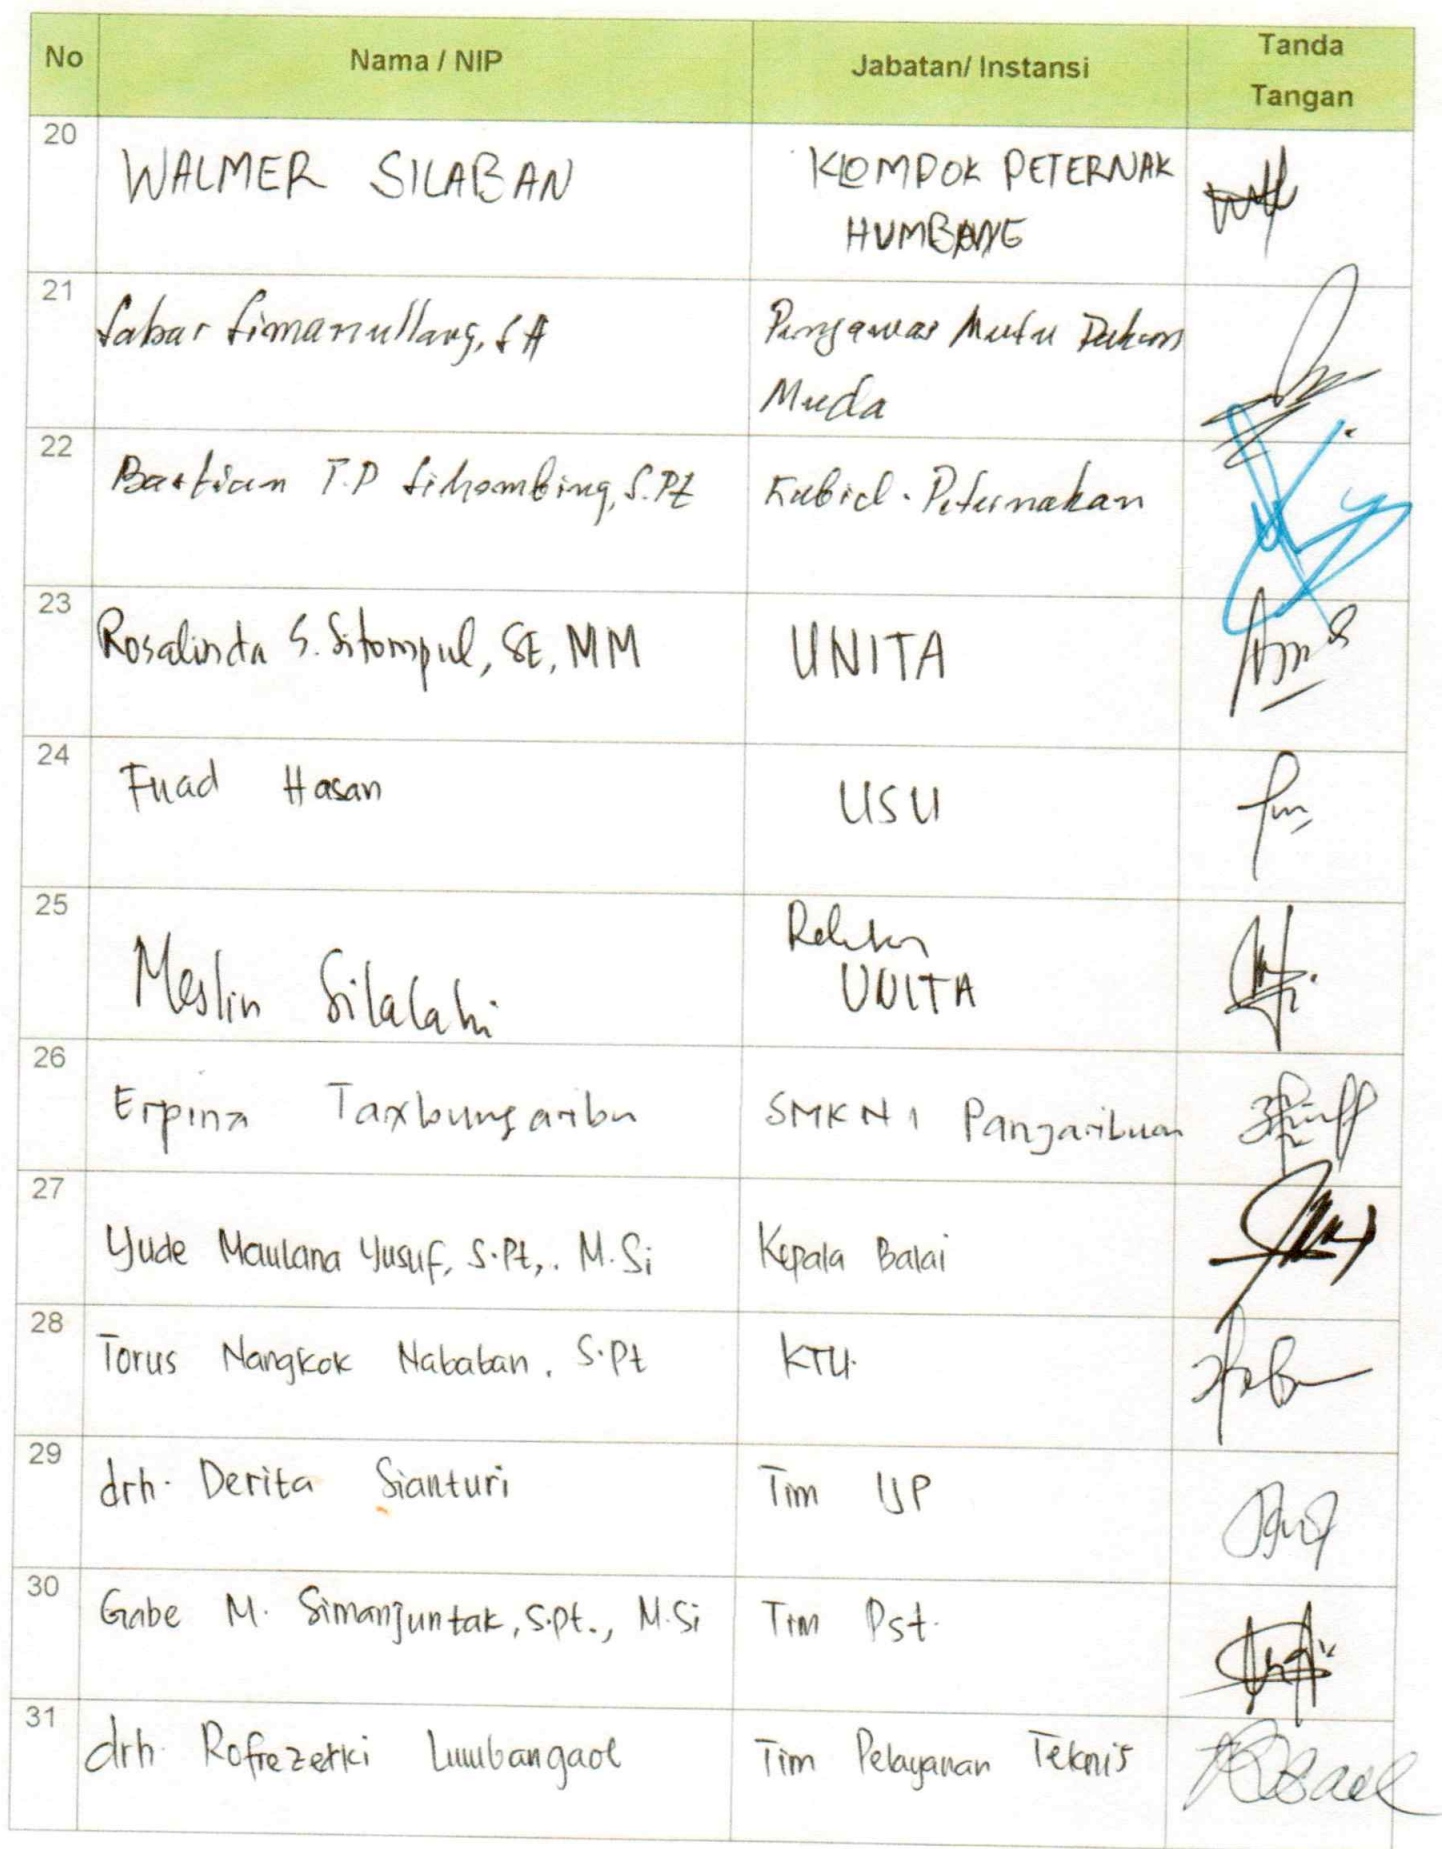 No Nama / NIP Jabatan/ Instansi Tanda Tangan
20 WALMER SILABAN KLOMPOK PETERNAK
HUMBANG
21 Sabar Simanullang, SH Pengawas Mutu Pakan
Muda
22 Bastian T.P Sihombing, S.Pt Kabid. Peternakan
23 Rosalinda S. Sitompul, SE, MM UNITA
24 Fuad Hasan USU
25 Meslin Silalahi Rektor
UNITA
26 Erpina SMKN 1 Pangaribuan
27 Yude Maulana Yusuf, S.Pt,. M.Si Kepala Balai
28 Torus Nangkok Nababan. S.Pt KTU.
29 drh. Derita Sianturi Tim UP
30 Gabe M. Simanjuntak, S.pt., M.Si Tim Pst.
31 drh. Rofrezerki Lumbangaol Tim Pelayanan Teknis